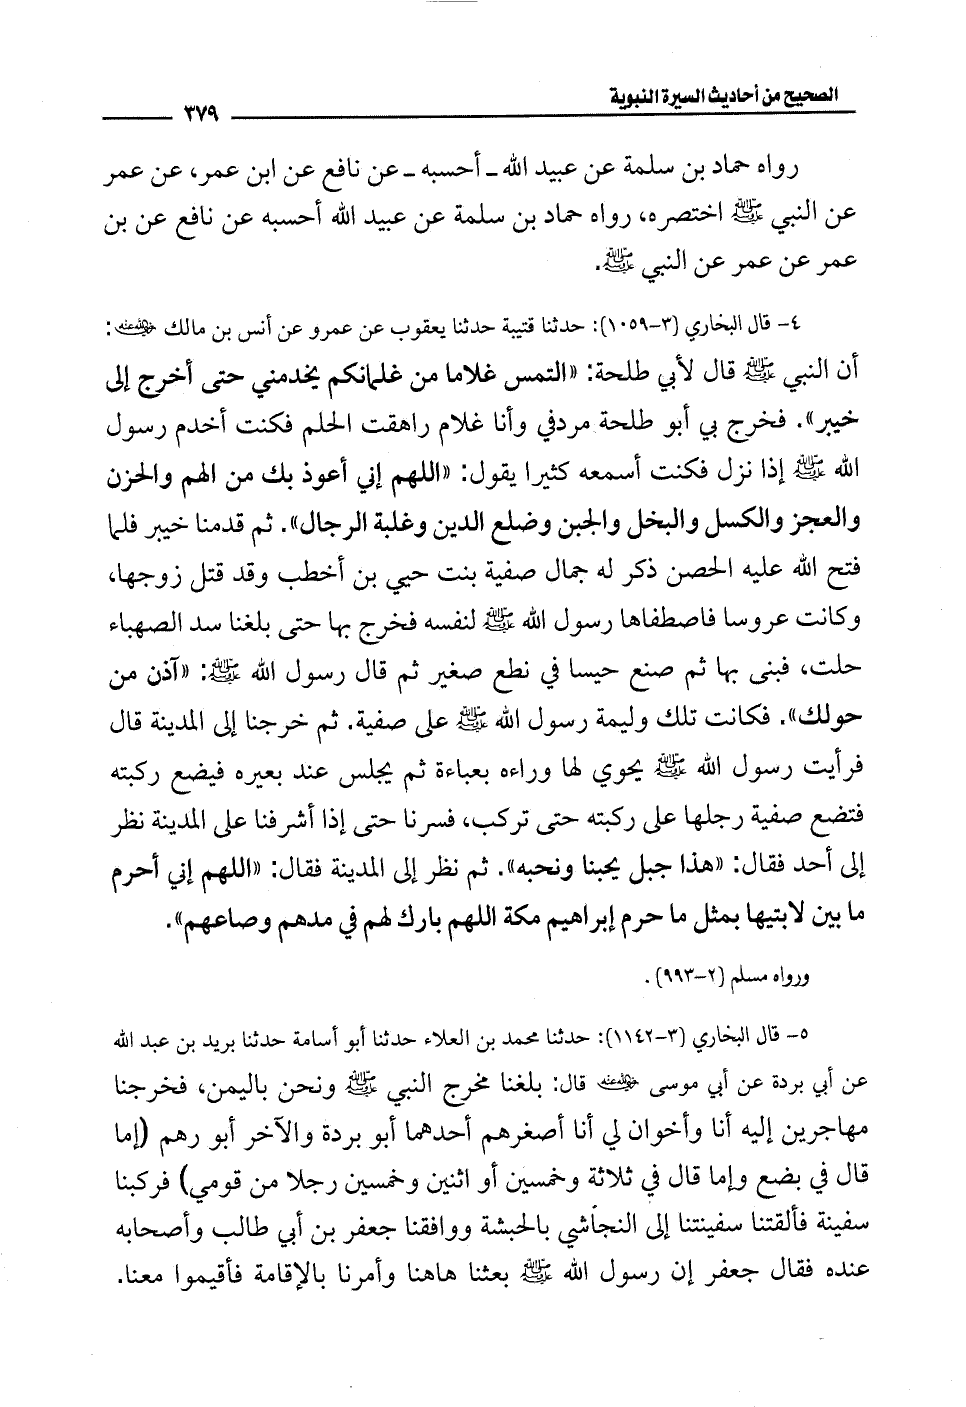 الصحيح من أحاديث السيرة النبوية
٣٧٩
رواه حماد بن سلمة عن عبيد الله ـ أحسبه ـ عن نافع عن ابن عمر، عن عمر
عن النبي ﷺ اختصره، رواه حماد بن سلمة عن عبيد الله أحسبه عن نافع عن بن
عمر عن عمر عن النبي ﷺ.
٤- قال البخاري (٣-١٠٥٩): حدثنا قتيبة حدثنا يعقوب عن عمرو عن أنس بن مالك رضي الله عنه:
أن النبي ﷺ قال لأبي طلحة: «التمس غلاما من غلمانكم يخدمني حتى أخرج إلى
خيبر». فخرج بي أبو طلحة مردفي وأنا غلام راهقت الحلم فكنت أخدم رسول
الله ﷺ إذا نزل فكنت أسمعه كثيرا يقول: «اللهم إني أعوذ بك من الهم والحزن
والعجز والكسل والبخل والجبن وضلع الدين وغلبة الرجال». ثم قدمنا خيبر فلما
فتح الله عليه الحصن ذكر له جمال صفية بنت حيي بن أخطب وقد قتل زوجها،
وكانت عروسا فاصطفاها رسول الله ﷺ لنفسه فخرج بها حتى بلغنا سد الصهباء
حلت، فبنى بها ثم صنع حيسا في نطع صغير ثم قال رسول الله ﷺ: «آذن من
حولك». فكانت تلك وليمة رسول الله ﷺ على صفية. ثم خرجنا إلى المدينة قال
فرأيت رسول الله ﷺ يحوي لها وراءه بعباءة ثم يجلس عند بعيره فيضع ركبته
فتضع صفية رجلها على ركبته حتى تركب، فسرنا حتى إذا أشرفنا على المدينة نظر
إلى أحد فقال: «هذا جبل يحبنا ونحبه». ثم نظر إلى المدينة فقال: «اللهم إني أحرم
ما بين لابتيها بمثل ما حرم إبراهيم مكة اللهم بارك لهم في مدهم وصاعهم».
ورواه مسلم (٢-٩٩٣).
٥- قال البخاري (٣-١١٤٢): حدثنا محمد بن العلاء حدثنا أبو أسامة حدثنا بريد بن عبد الله
عن أبي بردة عن أبي موسى رضي الله عنه قال: بلغنا مخرج النبي ﷺ ونحن باليمن، فخرجنا
مهاجرين إليه أنا وأخوان لي أنا أصغرهم أحدهما أبو بردة والآخر أبو رهم (إما
قال في بضع وإما قال في ثلاثة وخمسين أو اثنين وخمسين رجلا من قومي) فركبنا
سفينة فألقتنا سفينتنا إلى النجاشي بالحبشة ووافقنا جعفر بن أبي طالب وأصحابه
عنده فقال جعفر إن رسول الله ﷺ بعثنا هاهنا وأمرنا بالإقامة فأقيموا معنا.